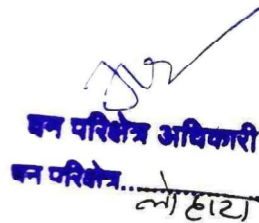 वन परिक्षेत्र अधिकारी
वन परिक्षेत्र...लोहारा